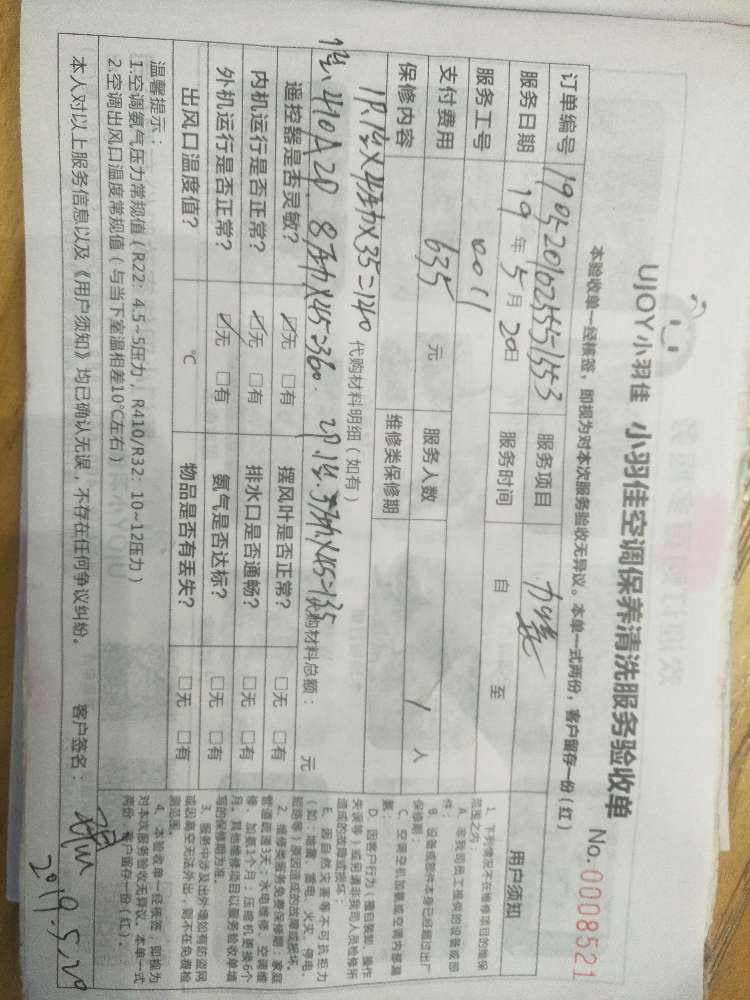 UJOY小羽佳 小羽佳空调保养清洗服务验收单
No.0008521
本验收单一经核签，即视为对本次服务验收无异议。本单一式两份，客户留存一份（红）
订单编号 服务项目
服务日期 19 年 5 月 20 日 服务时间 自 至
服务工号 0011
支付费用 635 元 服务人数 1 人
保修内容 维修类保修期
代购材料明细（如有）
代购材料总额： 元
遥控器是否灵敏？ ☑无 □有 摆风叶是否正常？ □无 □有
内机运行是否正常？ ☑无 □有 排水口是否通畅？ □无 □有
外机运行是否正常？ ☑无 □有 氨气是否达标？ □无 □有
出风口温度值？ ℃ 物品是否有丢失？ □无 □有
温馨提示：
1.空调氨气压力常规值（R22：4.5~5压力，R410/R32：10~12压力）
2.空调出风口温度常规值（与当下室温相差10℃左右）
本人对以上服务信息以及《用户须知》均已确认无误，不存在任何争议纠纷。
客户签名：
2019.5.20
用户须知
1、下列情况不在维修项目的维保
范围之内：
A、非我司员工提供的设备或部
件；
B、设备或部件本身已经超过出厂
保修期；
C、空调空机加氨或空调内部漏
氨；
D、因客户行为（擅自装卸、操作
失误等）或另请非我司人员检修所
造成的故障或损坏；
E、因自然灾害等不可抗拒力
（如：地震、雷电、火灾、停电、
短路等）原因造成的故障或损坏。
2、维修类服务免费保修期：家庭
管道疏通3天；水电维修、空调维
修、加氨1个月；压缩机更换6个
月，其他维修项目以服务验收单填
写的保修期为准。
3、服务中涉及出外墙如有防盗网
或因高空无法外出，则不在免费检
测范围。
4、本验收单一经核签，即视为
对本次服务验收无异议。本单一式
两份，客户留存一份（红）。